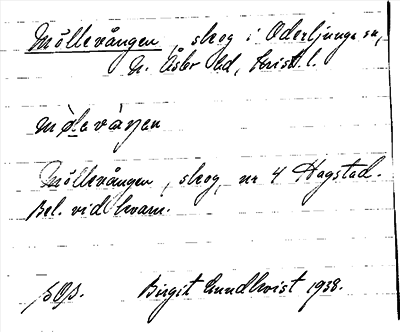 Möllevången, skog i Oderljunga sn,
N. Åsbo hd, Krist. l.
Möllevången, skog, nr 4 Hagstad.
Bel. vid kvarn.
Birgit Lundkvist 1938.